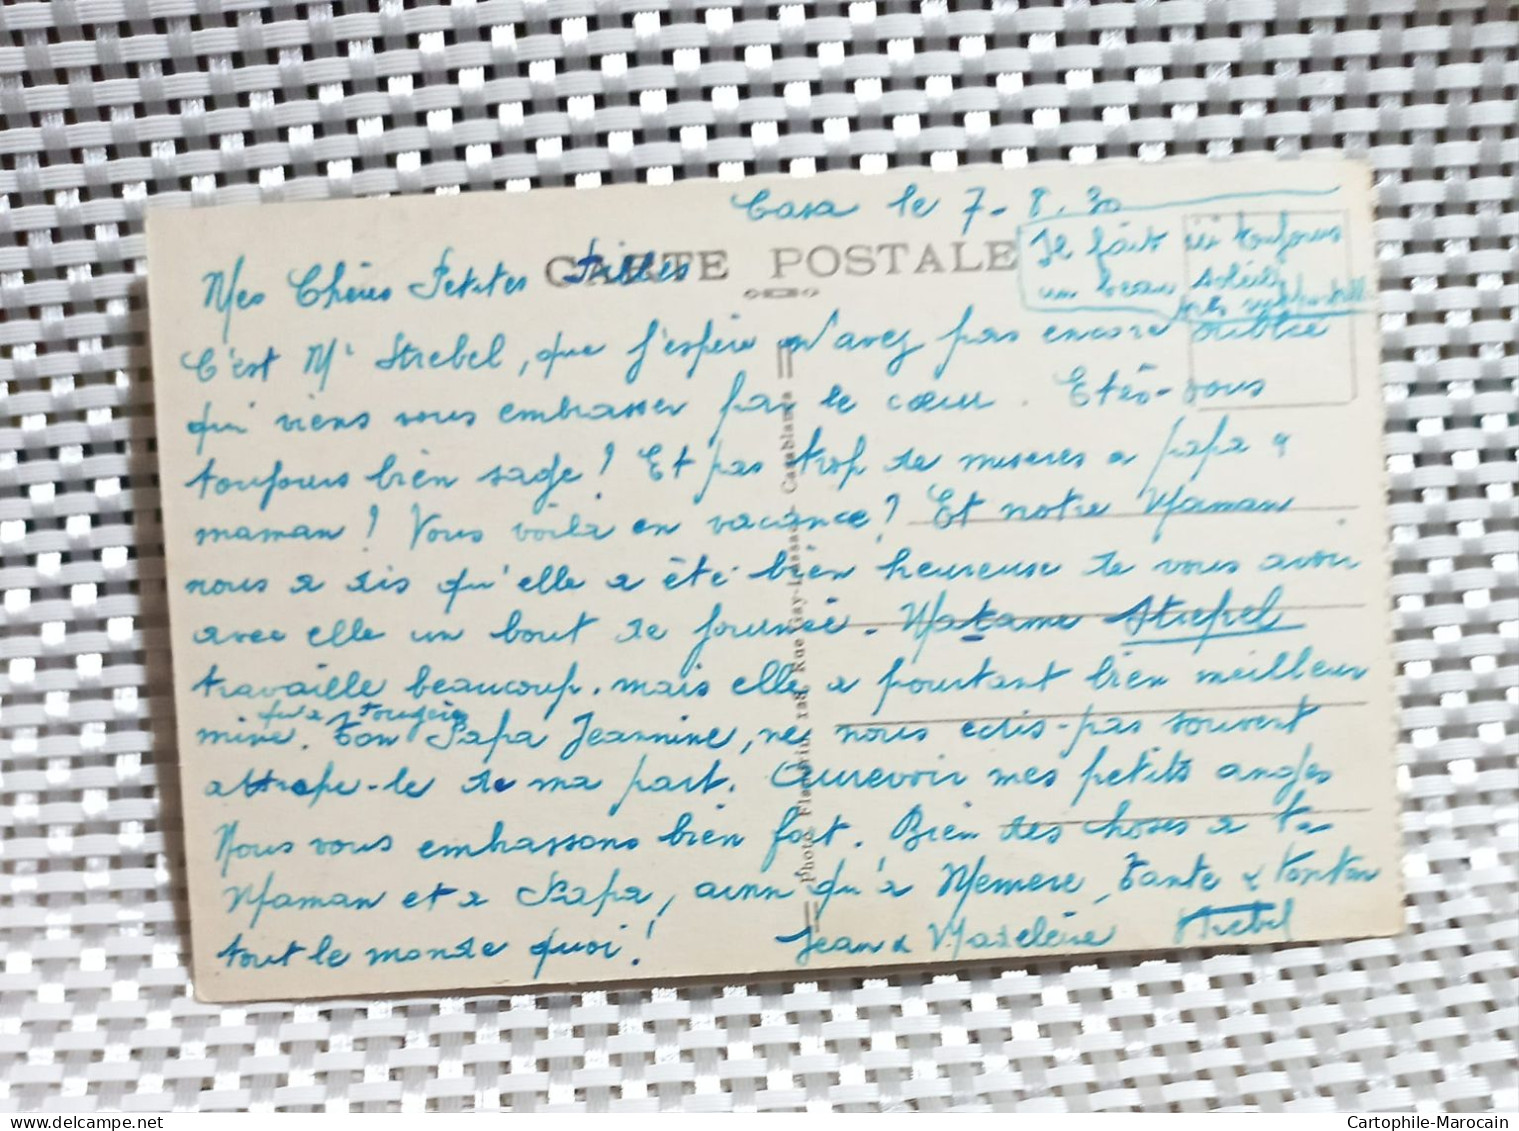 Casa le 7-8.30
CARTE POSTALE
Il fait ici toujours
un beau soleil
Mes Chères Petites Filles
C'est Mr Strebel, que j'espère n'avez pas encore oublié
qui viens vous embrasser par le cœur. Etes-vous
toujours bien sage! Et pas trop de miseres a papa &
maman! Vous voila en vacance? Et notre Maman
nous a dis qu'elle a été bien heureuse de vous avoir
avec elle un bout de journée. Madame Strebel
travaille beaucoup. mais elle a pourtant bien meilleur
mine. Ton Papa Jeannine, ne nous ecris-pas souvent
attrape-le de ma part. Aurevoir mes petits anges
Nous vous embrassons bien fort. Bien des choses a ta
Maman et a Papa, ainsi qu'a Memere, Tante & Tonton
tout le monde quoi! Jean & Madeleine Strebel
Photo Rue Gay-Lussac - Casablanca
Cartophile-Marocain